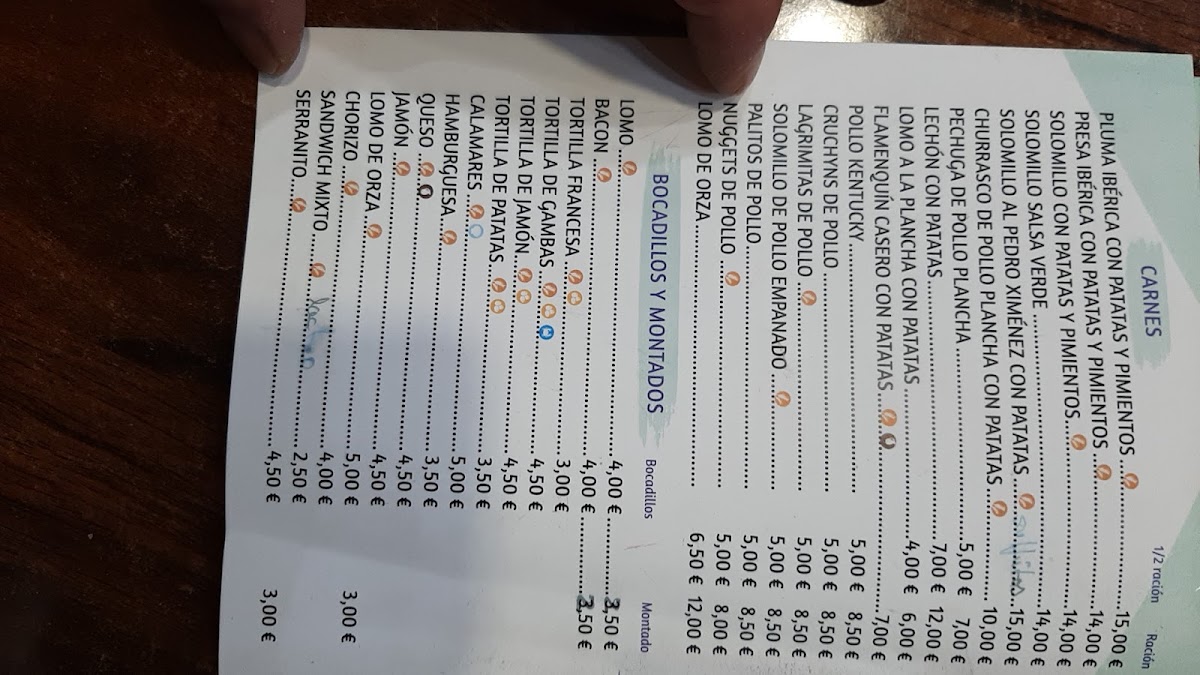 CARNES 1/2 ración Ración
PLUMA IBÉRICA CON PATATAS Y PIMIENTOS 15,00 €
PRESA IBÉRICA CON PATATAS Y PIMENTOS 14,00 €
SOLOMILLO CON PATATAS Y PIMENTOS 14,00 €
SOLOMILLO SALSA VERDE 14,00 €
SOLOMILLO AL PEDRO XIMÉNEZ CON PATATAS 15,00 €
CHURRASCO DE POLLO PLANCHA CON PATATAS 10,00 €
PECHUGA DE POLLO PLANCHA 5,00 € 7,00 €
LECHÓN CON PATATAS 7,00 € 12,00 €
LOMO A LA PLANCHA CON PATATAS 4,00 € 6,00 €
FLAMENQUÍN CASERO CON PATATAS 7,00 €
POLLO KENTUCKY 5,00 € 8,50 €
CRUCHYNS DE POLLO 5,00 € 8,50 €
LAGRIMITAS DE POLLO 5,00 € 8,50 €
SOLOMILLO DE POLLO EMPANADO 5,00 € 8,50 €
PALITOS DE POLLO 5,00 € 8,50 €
NUGGETS DE POLLO 5,00 € 8,00 €
LOMO DE ORZA 6,50 € 12,00 €
BOCADILLOS Y MONTADOS Bocadillos Montado
LOMO 4,00 € 3,50 €
BACON 4,00 € 3,50 €
TORTILLA FRANCESA 3,00 €
TORTILLA DE GAMBAS 4,50 €
TORTILLA DE JAMÓN 4,50 €
TORTILLA DE PATATAS 3,50 €
CALAMARES 5,00 €
HAMBURGUESA 3,50 €
QUESO 4,50 €
JAMÓN 4,50 €
LOMO DE ORZA 5,00 € 3,00 €
CHORIZO 4,00 €
SANDWICH MIXTO 2,50 €
SERRANITO 4,50 € 3,00 €